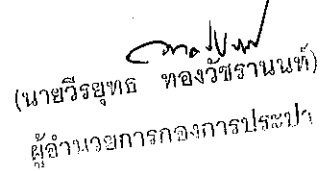 (นายวีรยุทธ ทองวัชรานนท์)
ผู้อำนวยการกองการประปา